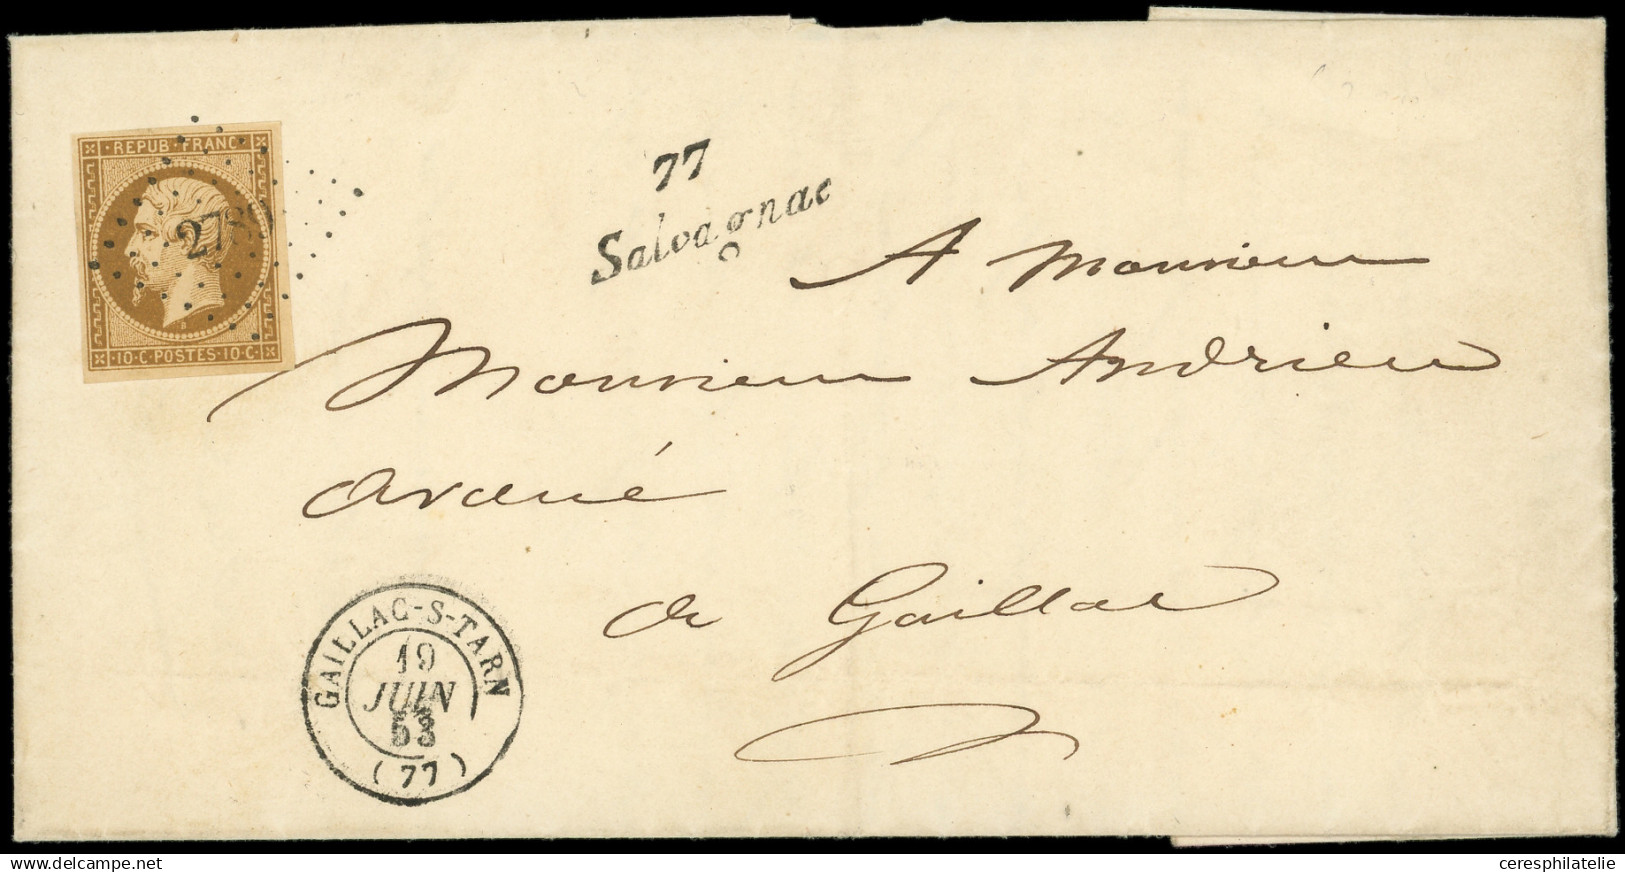 · REPUB · FRANC ·
2789
· 10 · C · POSTES · 10 · C ·
B
77
Salvagnac
A Monsieur
Monsieur Andrieu
avoué
de Gaillac
GAILLAC-S-TARN
19
JUIN
53
(77)
www.delcampe.net
ceresphilatelie